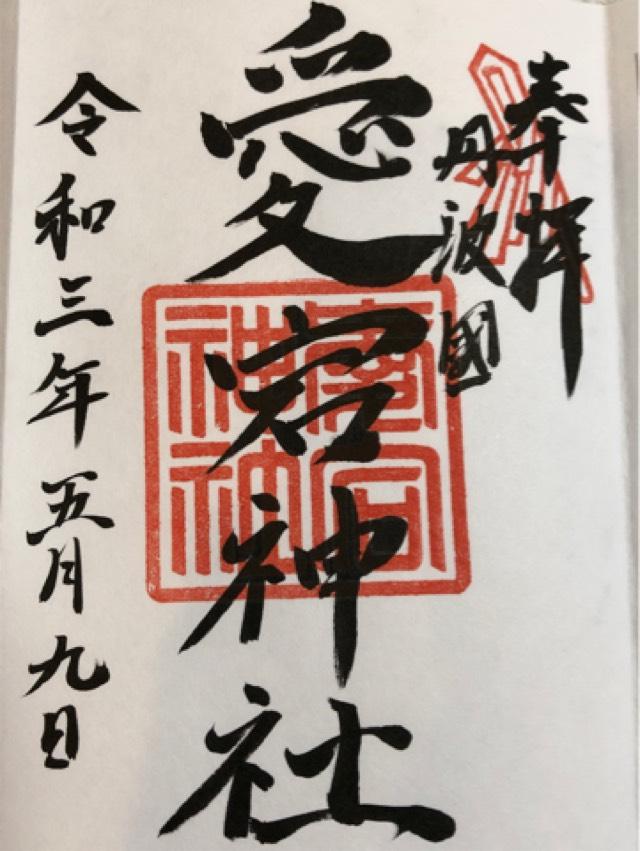 奉拝
丹波國
愛宕神社
令和三年五月九日